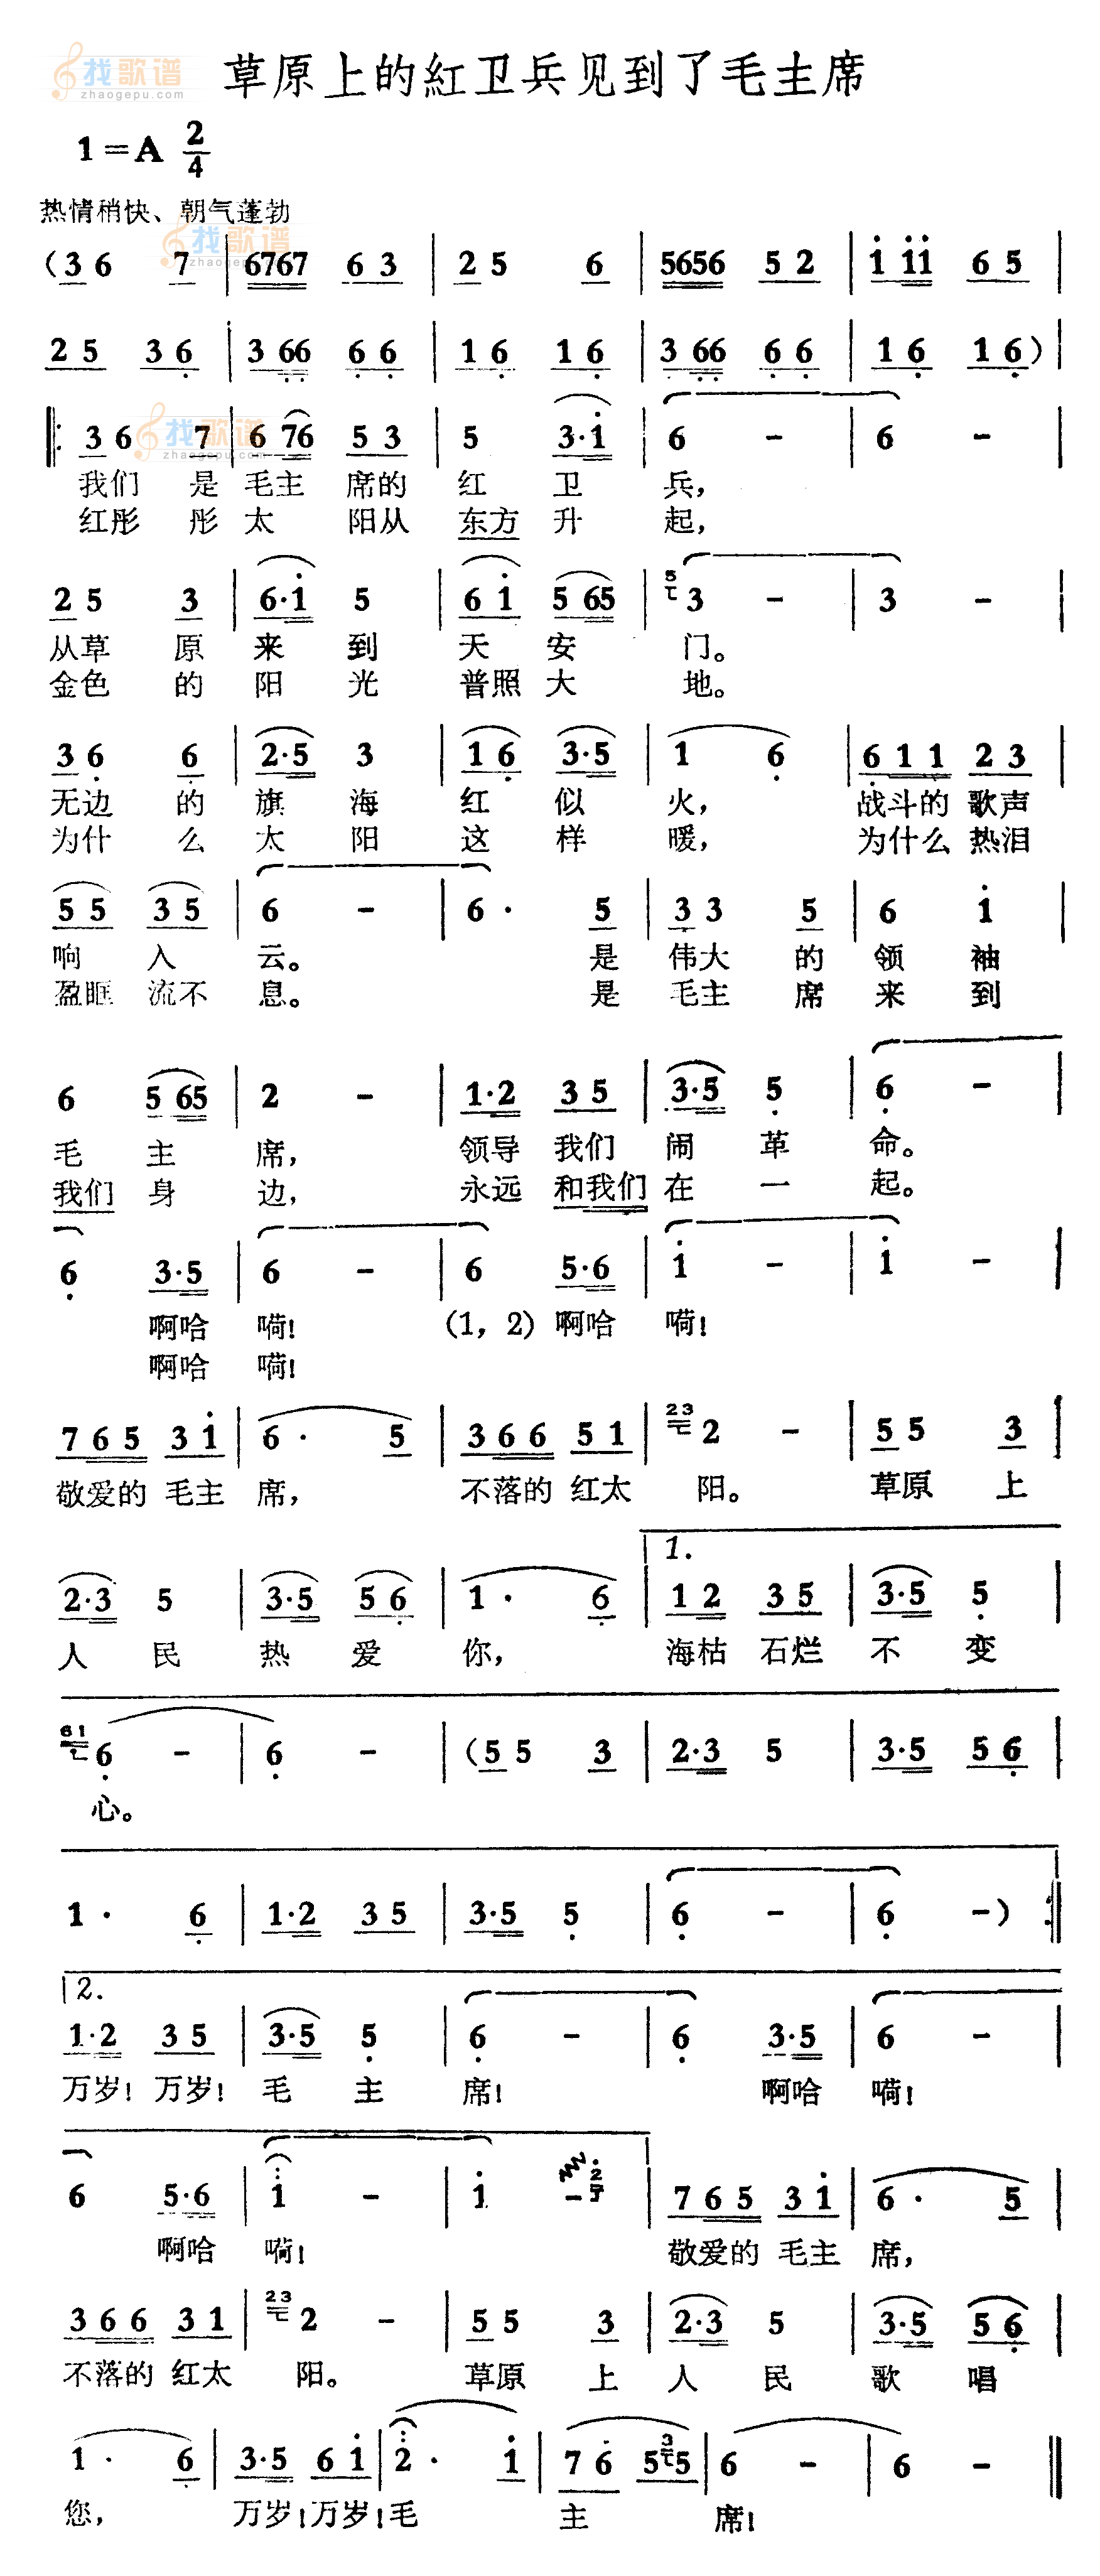 找歌谱
zhaogepu.com
草原上的紅卫兵见到了毛主席
1=A 2/4
热情稍快、朝气蓬勃
找歌谱
zhaogepu.com
(3 6 7 | 6767 6 3 | 2 5 6 | 5656 5 2 | i ii 6 5 |
2 5 3 6 | 3 66 6 6 | 1 6 1 6 | 3 66 6 6 | 1 6 1 6) |
找歌谱
zhaogepu.com
‖: 3 6 7 | 6 76 5 3 | 5 3·i | 6 - | 6 - |
我们 是 毛主 席的 红 卫 兵,
红彤 彤 太 阳从 东方 升 起,
2 5 3 | 6·i 5 | 6 i 5 65 | 5 3 - | 3 - |
从草 原 来 到 天 安 门。
金色 的 阳 光 普照 大 地。
3 6 6 | 2·5 3 | 1 6 3·5 | 1 6 | 6 1 1 2 3 |
无边 的 旗 海 红 似 火, 战斗的 歌声
为什 么 太 阳 这 样 暖, 为什么 热泪
5 5 3 5 | 6 - | 6· 5 | 3 3 5 | 6 i |
响 入 云。 是 伟大 的 领 袖
盈眶 流不 息。 是 毛主 席 来 到
6 5 65 | 2 - | 1·2 3 5 | 3·5 5 | 6 - |
毛 主 席, 领导 我们 闹 革 命。
我们 身 边, 永远 和我们 在 一 起。
6 3·5 | 6 - | 6 5·6 | i - | i - |
啊哈 嗬! (1, 2) 啊哈 嗬!
啊哈 嗬!
7 6 5 3 i | 6· 5 | 3 6 6 5 1 | 23 2 - | 5 5 3 |
敬爱的 毛主 席, 不落的 红太 阳。 草原 上
1.
2·3 5 | 3·5 5 6 | 1· 6 | 1 2 3 5 | 3·5 5 |
人 民 热 爱 你, 海枯 石烂 不 变
61 6 - | 6 - | (5 5 3 | 2·3 5 | 3·5 5 6 |
心。
1· 6 | 1·2 3 5 | 3·5 5 | 6 - | 6 -) :‖
2.
1·2 3 5 | 3·5 5 | 6 - | 6 3·5 | 6 - |
万岁! 万岁! 毛 主 席! 啊哈 嗬!
6 5·6 | i - | i - 2 | 7 6 5 3 i | 6· 5 |
啊哈 嗬! 敬爱的 毛主 席,
3 6 6 3 1 | 23 2 - | 5 5 3 | 2·3 5 | 3·5 5 6 |
不落的 红太 阳。 草原 上 人 民 歌 唱
1· 6 | 3·5 6 i | 2· i | 7 6 5 3 5 | 6 - | 6 - ‖
您, 万岁!万岁!毛 主 席!